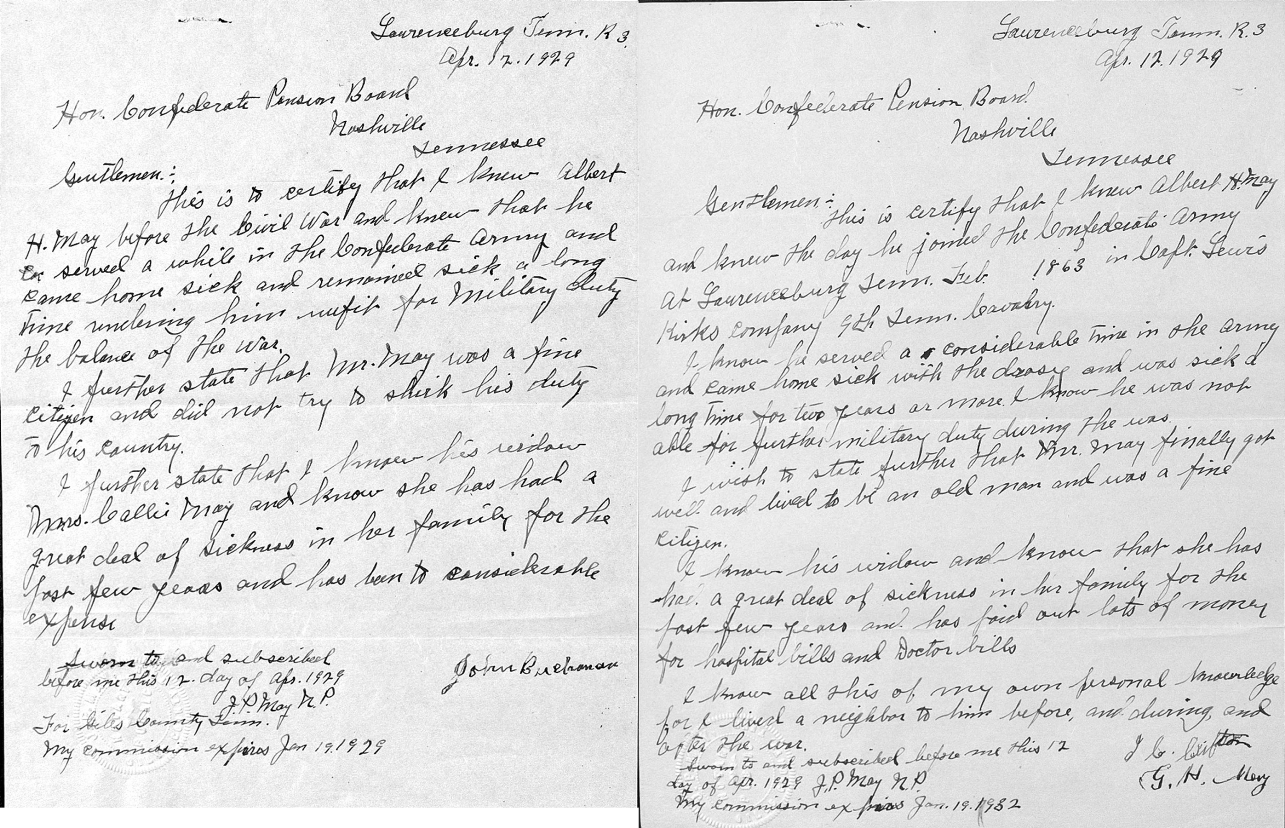 Lawrenceburg Tenn. R 3.
Apr. 12. 1929
Hon. Confederate Pension Board
Nashville
Tennessee
Gentlemen:-
This is to certify that I knew Albert
H. May before the Civil War and knew that he
served a while in the Confederate Army and
came home sick and remained sick a long
time rendering him unfit for Military Duty
the balance of the War.
I further state that Mr. May was a fine
citizen and did not try to shirk his duty
to his country.
I further state that I know his widow
Mrs. Callie May and know she has had a
great deal of sickness in her family for the
past few years and has ben to considerable
expense
Sworn to and subscribed
before me this 12. day of Apr. 1929
J.P. May N.P.
For Giles County Tenn.
My commission expires Jan 19. 1929
John Buchanan
Lawrenceburg Tenn. R. 3
Apr. 12. 1929
Hon. Confederate Pension Board.
Nashville
Tennessee
Gentlemen:-
This is certify that I knew Albert H. May
and knew the day he joined the Confederate Army
at Lawrenceburg Tenn. Feb. 1863 in Capt. Lewis
Kirks Company 9th Tenn. Cavalry.
I know he served a considerable time in the army
and came home sick with the and was sick a
long time for two years or more. I know he was not
able for further military duty during the was
I wish to state further that Mr. May finally got
well and lived to be an old man and was a fine
citizen.
I know his widow and know that she has
had a great deal of sickness in her family for the
past few years and has paid out lots of money
for hospital bills and Doctor bills
I know all this of my own personal knowledge
for I lived a neighbor to him before, and during, and
after the war.
Sworn to and subscribed before me this 12
day of Apr. 1929 J.P. May N.P.
My commission expires Jan. 19. 1932
J. C. Clifton
G. H. May